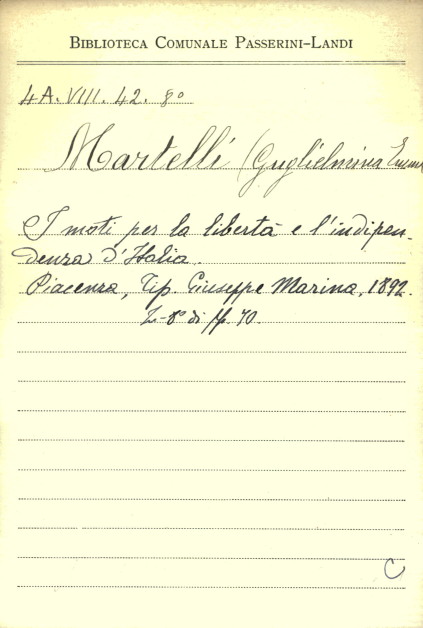 BIBLIOTECA COMUNALE PASSERINI-LANDI
4A. VIII. 42. 8º
Martelli (Guglielmina
I moti per la libertà e l'indipen-
denza d'Italia.
Piacenza, Tip. Giuseppe Marina, 1892.
di pp. 70.
C